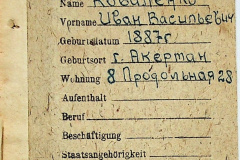 Name Коваленко
Vorname Иван Васильевич
Geburtsdatum 1887г
Geburtsort г. Акерман
Wohnung 8 Продольная 28
Aufenthalt
Beruf
Beschäftigung
Staatsangehörigkeit